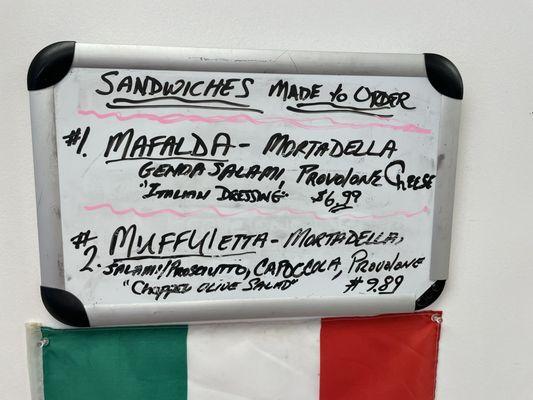 SANDWICHES MADE to ORDER
#1. MAFALDA - MORTADELLA
GENOA SALAMI, PROVOLONE CHEESE
"ITALIAN DRESSING" $6.99
#2. MUFFULETTA - MORTADELLA,
SALAMI/PROSCIUTTO, CAPOCCOLA, PROVOLONE
"CHOPPED OLIVE SALAD" #9.89